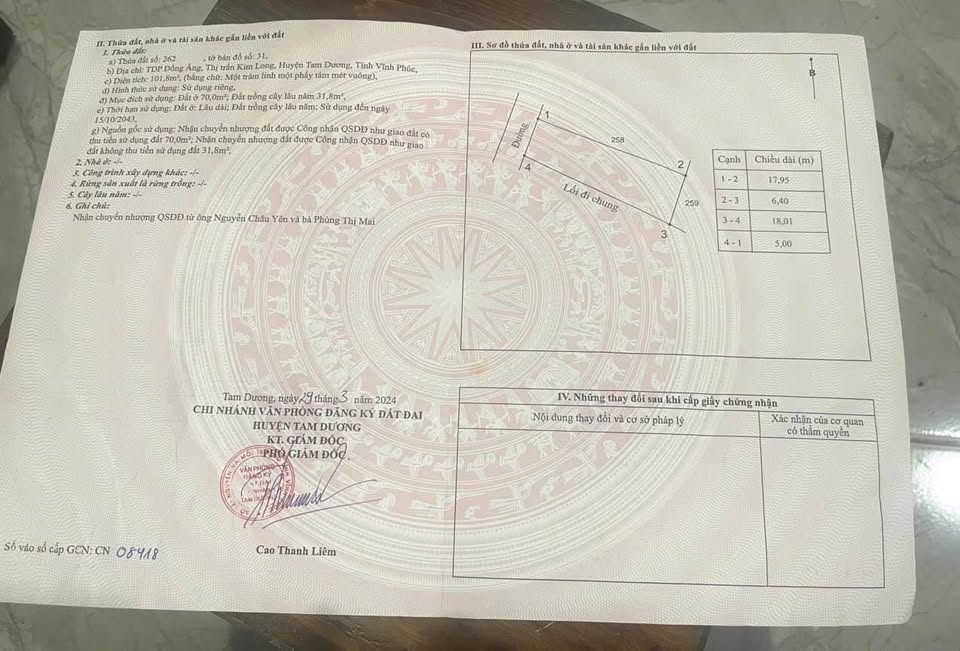 II. Thửa đất, nhà ở và tài sản khác gắn liền với đất
1. Thửa đất:
a) Thửa đất số: 262 , tờ bản đồ số: 31,
b) Địa chỉ: TDP Đồng Ăng, Thị trấn Kim Long, Huyện Tam Dương, Tỉnh Vĩnh Phúc,
c) Diện tích: 101,8m², (bằng chữ: Một trăm linh một phẩy tám mét vuông),
d) Hình thức sử dụng: Sử dụng riêng,
đ) Mục đích sử dụng: Đất ở 70,0m²; Đất trồng cây lâu năm 31,8m²,
e) Thời hạn sử dụng: Đất ở: Lâu dài; Đất trồng cây lâu năm: Sử dụng đến ngày
15/10/2043,
g) Nguồn gốc sử dụng: Nhận chuyển nhượng đất được Công nhận QSDĐ như giao đất có
thu tiền sử dụng đất 70,0m²; Nhận chuyển nhượng đất được Công nhận QSDĐ như giao
đất không thu tiền sử dụng đất 31,8m²,
2. Nhà ở: -/-
3. Công trình xây dựng khác: -/-
4. Rừng sản xuất là rừng trồng: -/-
5. Cây lâu năm: -/-
6. Ghi chú:
Nhận chuyển nhượng QSDĐ từ ông Nguyễn Châu Yên và bà Phùng Thị Mai
Tam Dương, ngày 29 tháng 3 năm 2024
CHI NHÁNH VĂN PHÒNG ĐĂNG KÝ ĐẤT ĐAI
HUYỆN TAM DƯƠNG
KT. GIÁM ĐỐC
PHÓ GIÁM ĐỐC
VĂN PHÒNG
ĐĂNG KÝ
Cao Thanh Liêm
Số vào sổ cấp GCN: CN 08418
III. Sơ đồ thửa đất, nhà ở và tài sản khác gắn liền với đất
B
Đường
1
258
2
259
4
Lối đi chung
3
Cạnh Chiều dài (m)
1 - 2 17,95
2 - 3 6,40
3 - 4 18,01
4 - 1 5,00
IV. Những thay đổi sau khi cấp giấy chứng nhận
Nội dung thay đổi và cơ sở pháp lý
Xác nhận của cơ quan
có thẩm quyền